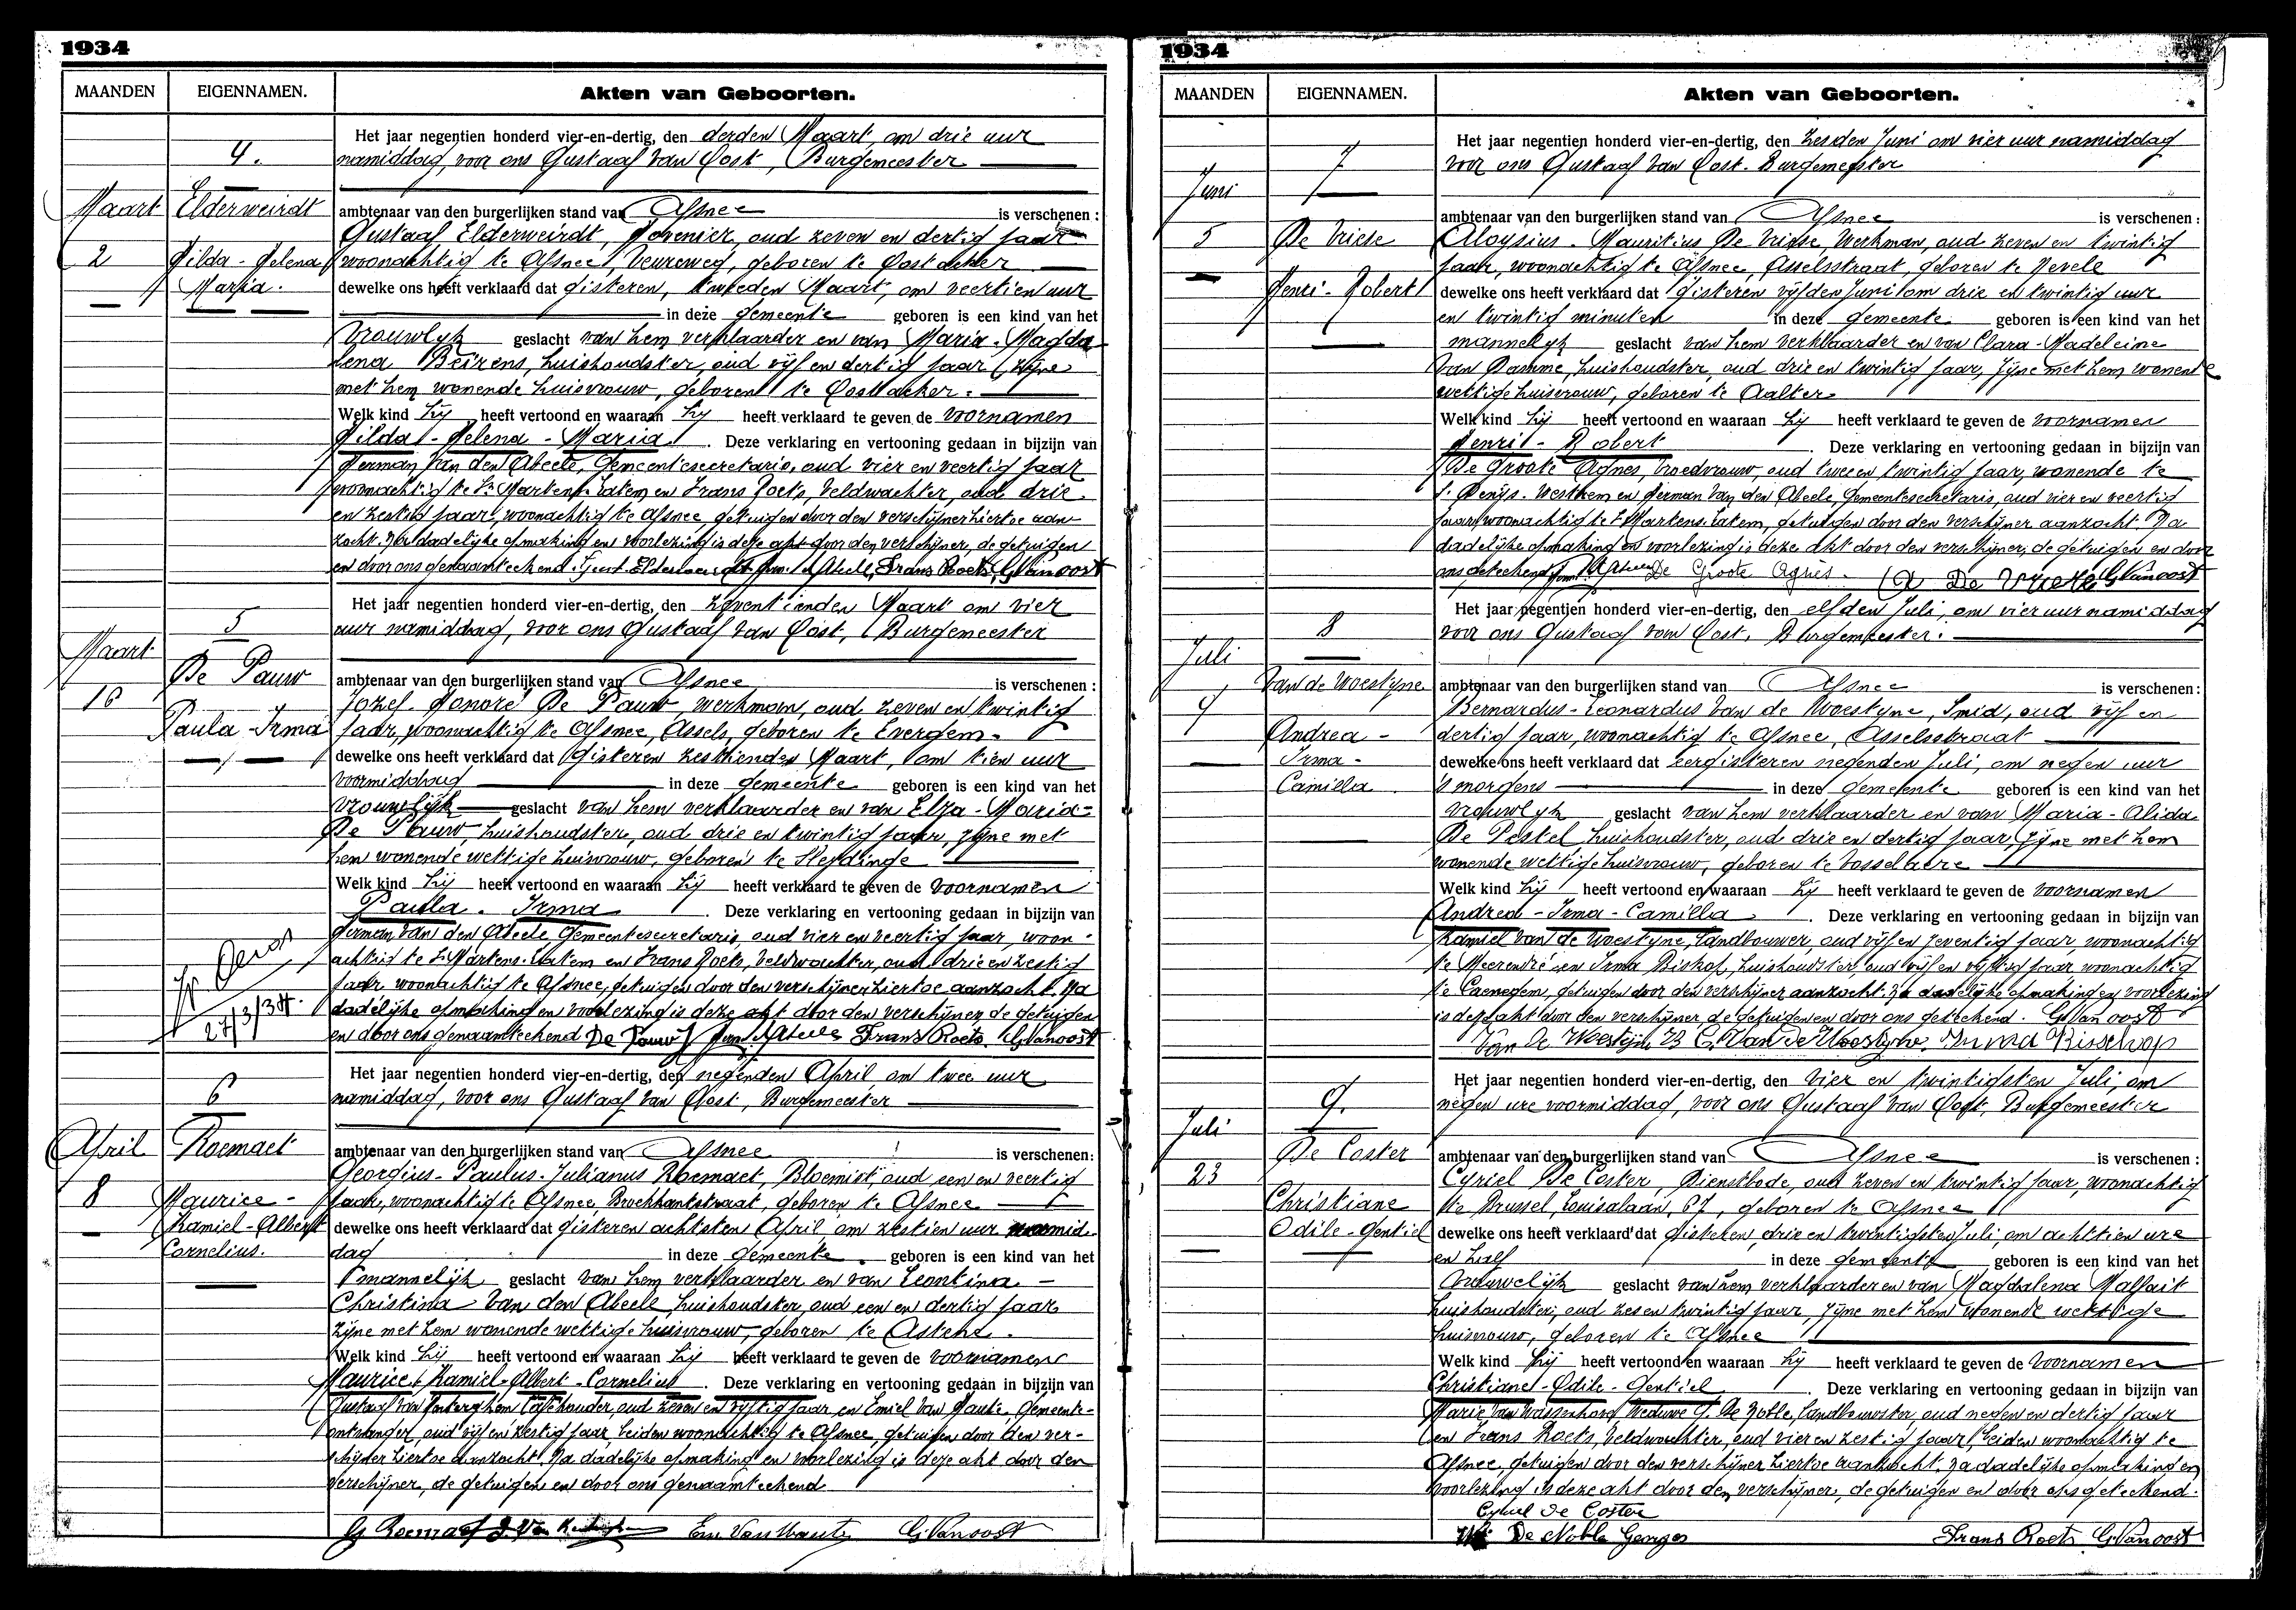 1934
MAANDEN EIGENNAMEN. Akten van Geboorten.
4.
Maart Elderweirdt
2 Hilda - Helena
Maria.
Het jaar negentien honderd vier-en-dertig, den derden Maart, om drie uur
namiddag, voor ons Gustaaf Van Oost, Burgemeester
ambtenaar van den burgerlijken stand van Afsnee is verschenen :
Gustaaf Elderweirdt, Hovenier, oud zeven en dertig jaar
woonachtig te Afsnee, Veureweg, geboren te Oostacker
dewelke ons heeft verklaard dat gisteren, tweeden Maart, om veertien uur
in deze gemeente geboren is een kind van het
Vrouwlyk geslacht van hem verklaarder en van Maria-Magda
lena Beirens, huishoudster, oud vijf en dertig jaar, zijne
met hem wonende huisvrouw, geboren te Oostacker.
Welk kind hij heeft vertoond en waaraan hij heeft verklaard te geven de voornamen
Hilda - Helena - Maria. Deze verklaring en vertooning gedaan in bijzijn van
Herman Van den Abeele, Gemeentesecretaris, oud vier en veertig jaar
woonachtig te St Martens-Latem en Frans Roets, Veldwachter, oud drie
en zestig jaar, woonachtig te Afsnee, getuigen door den verschijner hiertoe aan-
zocht. Na dadelijke opmaking en voorlezing is deze akt door den verschijner, de getuigen
en door ons genaamteekend. Gust. Elderweirdt Herm. Vd Abeele, Frans Roets, G. Vanoost
5
Maart De Pauw
16
Paula-Irma
Het jaar negentien honderd vier-en-dertig, den zeventienden Maart om vier
uur namiddag, voor ons Gustaaf Van Oost, Burgemeester
ambtenaar van den burgerlijken stand van Afsnee is verschenen :
Jozef Honoré De Pauw werkman, oud zeven en twintig
jaar, woonachtig te Afsnee, Assels, geboren te Evergem.
dewelke ons heeft verklaard dat gisteren zestienden Maart, om tien uur
voormiddag in deze gemeente geboren is een kind van het
vrouwlijk geslacht van hem verklaarder en van Elza-Maria-
De Pauw, huishoudster, oud drie en twintig jaar, zijne met
hem wonende wettige huisvrouw, geboren te Sleydinge
Welk kind hij heeft vertoond en waaraan hij heeft verklaard te geven de voornamen
Paula. Irma Deze verklaring en vertooning gedaan in bijzijn van
Herman Van den Abeele Gemeentesecretaris, oud vier en veertig jaar, woon-
achtig te St Martens-Latem en Frans Roets, Veldwachter, oud drie en zestig
jaar woonachtig te Afsnee, getuigen door den verschijner hiertoe aanzocht. Na
27/3/34. dadelijke opmaking en voorlezing is deze akt door den verschijner de getuigen
en door ons genaamteekend De Pauw J Herm Vd Abeele Frans Roets. G. Vanoost
6
April Roemaet
8 Maurice -
Kamiel-Albert
Cornelius.
Het jaar negentien honderd vier-en-dertig, den negenden April om twee uur
namiddag, voor ons Gustaaf Van Oost, Burgemeester
ambtenaar van den burgerlijken stand van Afsnee is verschenen:
Georgius-Paulus-Julianus Roemaet, Bloemist, oud een en veertig
jaar, woonachtig te Afsnee, Broekkantstraat, geboren te Afsnee
dewelke ons heeft verklaard dat gisteren achtsten April, om zestien uur namid-
dag in deze gemeente geboren is een kind van het
mannelijk geslacht van hem verklaarder en van Leontina -
Christina Van den Abeele huishoudster, oud een en dertig jaar
zijne met hem wonende wettige huisvrouw, geboren te Astene.
Welk kind hij heeft vertoond en waaraan hij heeft verklaard te geven de voornamen
Maurice-Kamiel-Albert-Cornelius. Deze verklaring en vertooning gedaan in bijzijn van
Gustaaf Van Kerkerghem Cafehouder, oud zeven en vijftig jaar en Emiel Van Haute, Gemeente-
ontvanger, oud vijf en zestig jaar, beiden woonachtig te Afsnee, getuigen door den ver-
schijner hiertoe aanzocht. Na dadelijke opmaking en voorlezing is deze akt door den
verschijner, de getuigen en door ons genaamteekend
G Roemaet G. Van Em Van Haute G. Vanoost
1934
MAANDEN EIGENNAMEN. Akten van Geboorten.
7
Juni
5 De Vriese
Henri-Robert
Het jaar negentien honderd vier-en-dertig, den zesden Juni om vier uur namiddag
voor ons Gustaaf Van Oost. Burgemeester
ambtenaar van den burgerlijken stand van Afsnee is verschenen :
Aloysius. Mauritius De Vriese, Werkman, oud zeven en twintig
jaar, woonachtig te Afsnee, Asselsstraat, geboren te Nevele
dewelke ons heeft verklaard dat gisteren vijfden Juni om drie en twintig uur
en twintig minuten in deze gemeente geboren is een kind van het
mannelyk geslacht van hem verklaarder en van Clara-Madeleine
Van Damme, huishoudster, oud drie en twintig jaar, zijne met hem wonende
wettige huisvrouw, geboren te Aalter.
Welk kind hij heeft vertoond en waaraan hij heeft verklaard te geven de voornamen
Henri - Robert . Deze verklaring en vertooning gedaan in bijzijn van
De Groote Agnes, Vroedvrouw, oud twee en twintig jaar, wonende te
St. Denijs-Westrem en Herman Van den Abeele, Gemeentesecretaris, oud vier en veertig
jaar, woonachtig te St Martens-Latem, getuigen door den verschijner aanzocht. Na
dadelijke opmaking en voorlezing is deze akt door den verschijner, de getuigen en door
ons geteekend Herm. Vd Abeele De Groote Agnès. A De Vriese G. Vanoost
8
Juli
Van de Woestyne
9
Andrea -
Irma -
Camilla
Het jaar negentien honderd vier-en-dertig, den elfden Juli, om vier uur namiddag
voor ons Gustaaf Van Oost, Burgemeester.
ambtenaar van den burgerlijken stand van Afsnee is verschenen:
Bernardus-Leonardus Van de Woestyne, Smid, oud vijf en
dertig jaar, woonachtig te Afsnee, Asselsstraat
dewelke ons heeft verklaard dat eergisteren negenden Juli, om negen uur
's morgens in deze gemeente geboren is een kind van het
vrouwlyk geslacht van hem verklaarder en van Maria-Alida
De Pestel, huishoudster, oud drie en dertig jaar zijne met hem
wonende wettige huisvrouw, geboren te Vosselaere
Welk kind hij heeft vertoond en waaraan hij heeft verklaard te geven de voornamen
Andrea - Irma - Camilla . Deze verklaring en vertooning gedaan in bijzijn van
Kamiel Van de Woestyne, Landbouwer, oud vijf en zeventig jaar, woonachtig
te Meerendré en Irma Biskop, huishoudster, oud vijf en vijftig jaar woonachtig
te Caenegem, getuigen door den verschijner aanzocht. Na dadelijke opmaking en voorlezing
is deze akt door den verschijner de getuigen en door ons geteekend. G. Van oost
Van De Woestijne B C. Van De Woestyne. Irma Bisschop
9.
Juli
De Coster
23
Christiane
Odile-Gentiel
Het jaar negentien honderd vier-en-dertig, den vier en twintigsten Juli, om
negen ure voormiddag, voor ons Gustaaf Van Oost, Burgemeester
ambtenaar van den burgerlijken stand van Afsnee is verschenen :
Cyriel De Coster, Dienstbode, oud zeven en twintig jaar, woonachtig
te Brussel, Louisalaan, 67, geboren te Afsnee
dewelke ons heeft verklaard dat gisteren, drie en twintigsten Juli, om achttien ure
en half in deze gemeente geboren is een kind van het
Vrouwelijk geslacht van hem verklaarder en van Magdalena Malfait
huishoudster, oud zes en twintig jaar, zijne met hem wonende wettige
huisvrouw, geboren te Afsnee
Welk kind hij heeft vertoond en waaraan hij heeft verklaard te geven de Voornamen
Christiane-Odile-Gentiel . Deze verklaring en vertooning gedaan in bijzijn van
Marie Van Wassenhove, Weduwe G. De Noble, Landbouwster, oud negen en dertig jaar
en Frans Roets, Veldwachter, oud vier en zestig jaar, beiden woonachtig te
Afsnee, getuigen door den verschijner hiertoe aanzocht. Na dadelijke opmaking en
voorlezing is deze akt door den verschijner, de getuigen en door ons geteekend.
Cyriel De Coster
De Noble Georges Frans Roets G. Vanoost